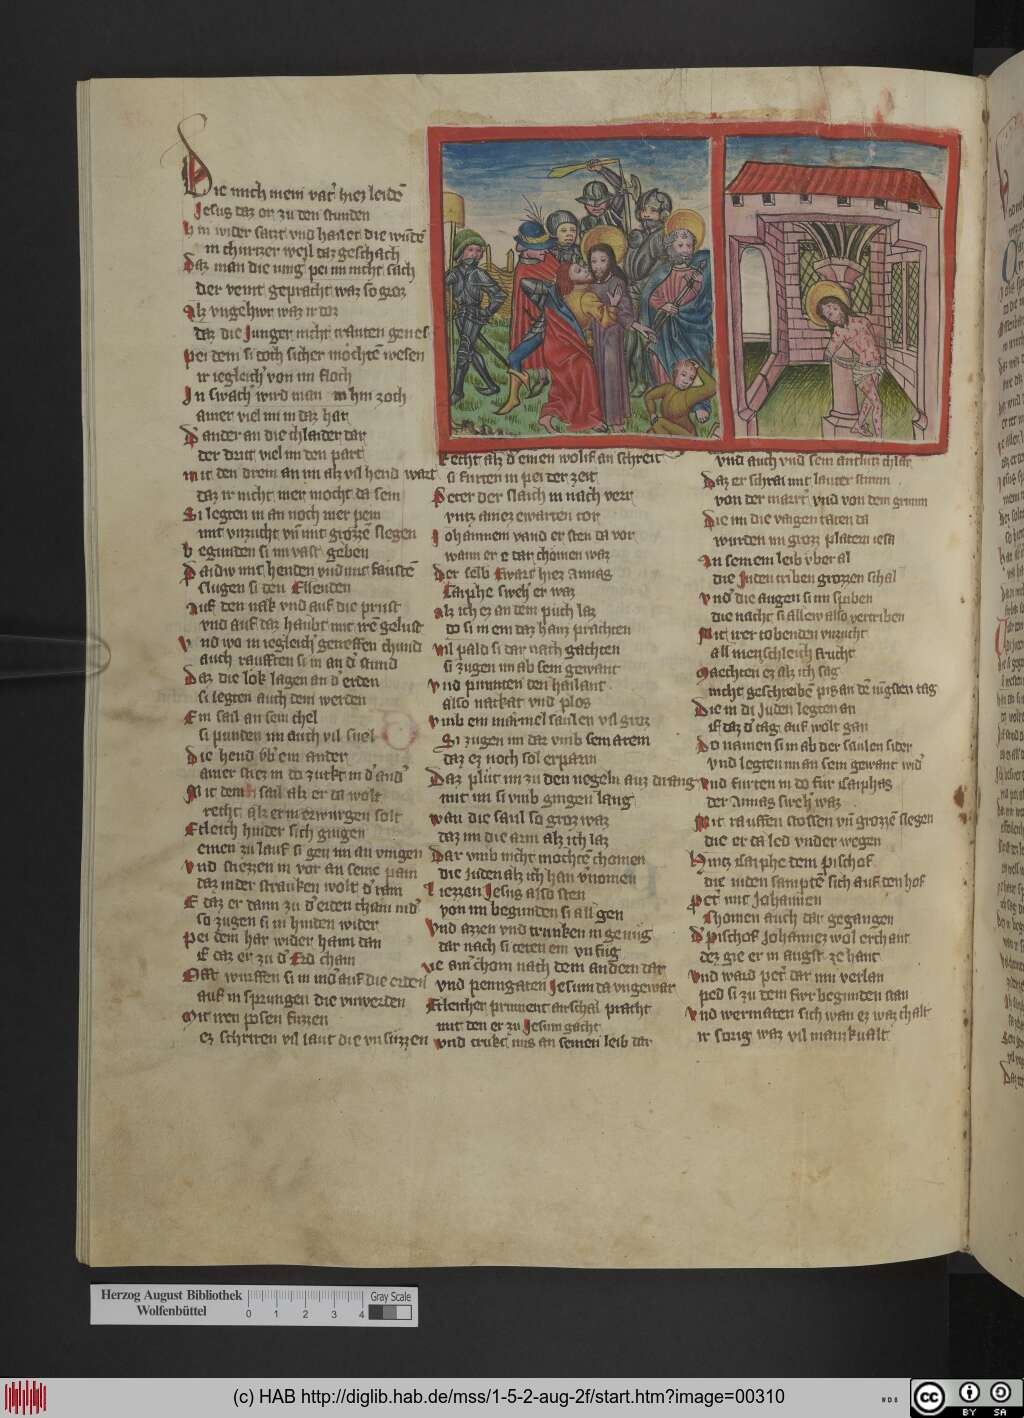 Die mich mein vat' hiez leidē
Jesus daz or zu den stunden
hin wider satzt vnd hailet die wūdē
in churtzer weil daz geschach
Daz man die ving pei im nicht sach
der veint gepracht waz so groz
Alz vngehwr waz ir
daz die Junger nicht trauten genes
Pei dem si doch sicher möchtē wesen
ir iegleich' von im floch
In swach' wird man in hin zoch
ainer viel im in daz har
D' ander an die chlaider dar
der dritt viel im den part
mit den drein an im alz vil hend wart
daz ir nicht mer mocht da sein
Si legten in an noch mer pein
mit vnzucht vn̄ mit grozzē slegen
begunden si im vast geben
Paidiv mit henden vnd mit faustē
slugen si den Ellenden
Auf den nak vnd auf die prust
vnd auf daz haubt mit irē gelust
vnd wo in iegleich' getreffen chund
auch raufften si in an d' stund
Daz die lok lagen an d' erden
si legten auch dem werden
Ein sail an sein chel
si punden im auch vil snel
Die hend vb' ein ander
ainer stiez in do zuckt in d' and'
Mit dem sail alz er da wolt
recht alz er in erwurgen solt
Etleich hinder sich gingen
einen zu lauf si gen im an vingen
vnd stiezzen in vor an seine pain
daz in der strauken wolt d' rain
E daz er dann zu d' erden cham nid'
so zugen si in hinden wider
Pei dem har wider haim dan
E daz er zu d' Erd cham
Offt wurffen si in nid' auf die erden
auf in sprungen die vnwerden
Mit iren posen fuzzen
ez schriren vil laut die vnsuzzen
Recht alz d' einen wolf an schreit
si furten in pei der zeit
Peter der slaich in nach verr
vntz ainez ewarten tor
Johannem vand er sten da vor
wann er e dar chomen waz
Der selb Ewart hiez Annas
Caiphe sweh' er waz
Alz ich ez an dem puch laz
do si in ein daz hauz prachten
vil pald si dar nach gachten
si zugen im ab sein gewant
vnd punnten den hailant
also nackat vnd plos
vmb ein marmel saulen vil groz
Si zugen im dar vmb sein arem
daz ez noch sol erparm
Daz plut im zu den negeln auz drang
mit im si vmb gingen lang
wan die saul so groz waz
daz im die arm alz ich laz
Dar vmb nicht mochtē chomen
die juden alz ich han v'nomen
Liezzen Jesus also sten
von im begunden si all gen
vnd azzen vnd trunken in genug
dar nach si teten ein vnfug
ie ain' chom nach dem andern dar
vnd penngaten Jesum da vngewar
Etleicher prinnent arschal pracht
mit den er zu Jesum gacht
vnd trukt ims an seinen leib dar
vnd auch vnd sein antlutz chlar
Daz er schrai mit lauter stimm
von der mart' vnd von dem grimm
Die im die vaigen taten da
wurden im grozz platern iesa
An seinem leib vber al
die Juden triben grozzen schal
vnd' die augen si im spiben
die nacht si allew also vertriben
Mit irer tobenden vnzucht
all menschleich frucht
Maechten ez alz ich sag
nicht geschreibē pis an dē iūgsten tag
Die in di Juden legten an
E daz d' tag auf wolt gan
Do namen si in ab der saulen sider
vnd legten im an sein gewant wid'
vnd furten in do fur Caiphas
der Annas sweh' waz
Mit rauffen stossen vn̄ grozzē slegen
die er da led vnder wegen
Hintz Caiphe dem Pischof
die iuden samptē sich auf den hof
Pet' mit Johannen
Chomen auch dar gegangen
D' Pischof Johannez wol erchant
dez gie er in angst ze hant
vnd ward pet' dar inn verlan
ped si zu dem fivr begunden stan
vnd wermaten sich wan ez waz chalt
ir sorig waz vil manikualt
Herzog August Bibliothek
Wolfenbüttel
Gray Scale
0 1 2 3 4
(c) HAB http://diglib.hab.de/mss/1-5-2-aug-2f/start.htm?image=00310
WDB
cc BY SA